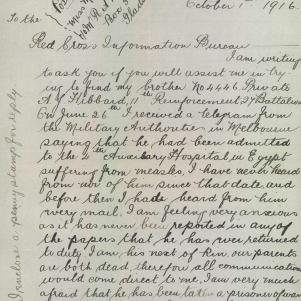 October 1916.
To the
Red Cross Information Bureau
I am writing
to ask you if you will assist me in try-
ing to find my brother No 4446. Private
A. J. Hibbard, 11th Reinforcement, 27 Battalion
On June 26th I received a telegram from
the Military Authorities in Melbourne
saying that he had been admitted
to the Auxiliary Hospital in Egypt
suffering from measles, I have never heard
from or of him since that date, and
before then I had heard from him
every mail. I am feeling very anxious
as it has never been reported in any of
the papers that he has ever returned
to duty. I am his next of Kin, our parents
are both dead, therefore all communication
would come direct to me. I am very much
afraid that he has been taken a prisoner of war
I enclose a penny stamp for reply